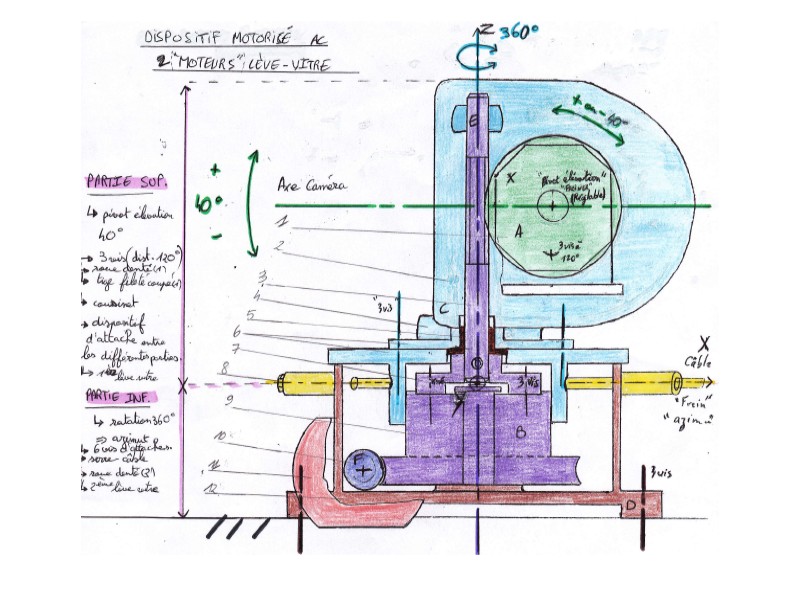 DISPOSITIF MOTORISÉ AC
2 "MOTEURS" LÈVE-VITRE
Z
360°
E
+ ou - 40°
PARTIE SUP.
↳ pivot élévation
40°
→ 3 vis (dist. 120°)
→ roue denté (1)
↳ tige fileté coupé (1)
↳ coussinet
→ dispositif
d'attache entre
les différentes parties.
lève vitre
+
40°
-
Axe Caméra
X
"pivot élévation"
"FREINÉ"
(Réglable)
A
3 vis à
120°
1
2
3
4
5
6
7
8
9
10
11
12
"3 vis"
C
X
Câble
"Frein"
"azim."
3 vis
B
F
3 vis
D
PARTIE INF.
↳ rotation 360°
⇒ azimut
↳ 6 vis d'attaches.
↳ serre-câble
→ roue denté (2)
↳ 2ème lève vitre